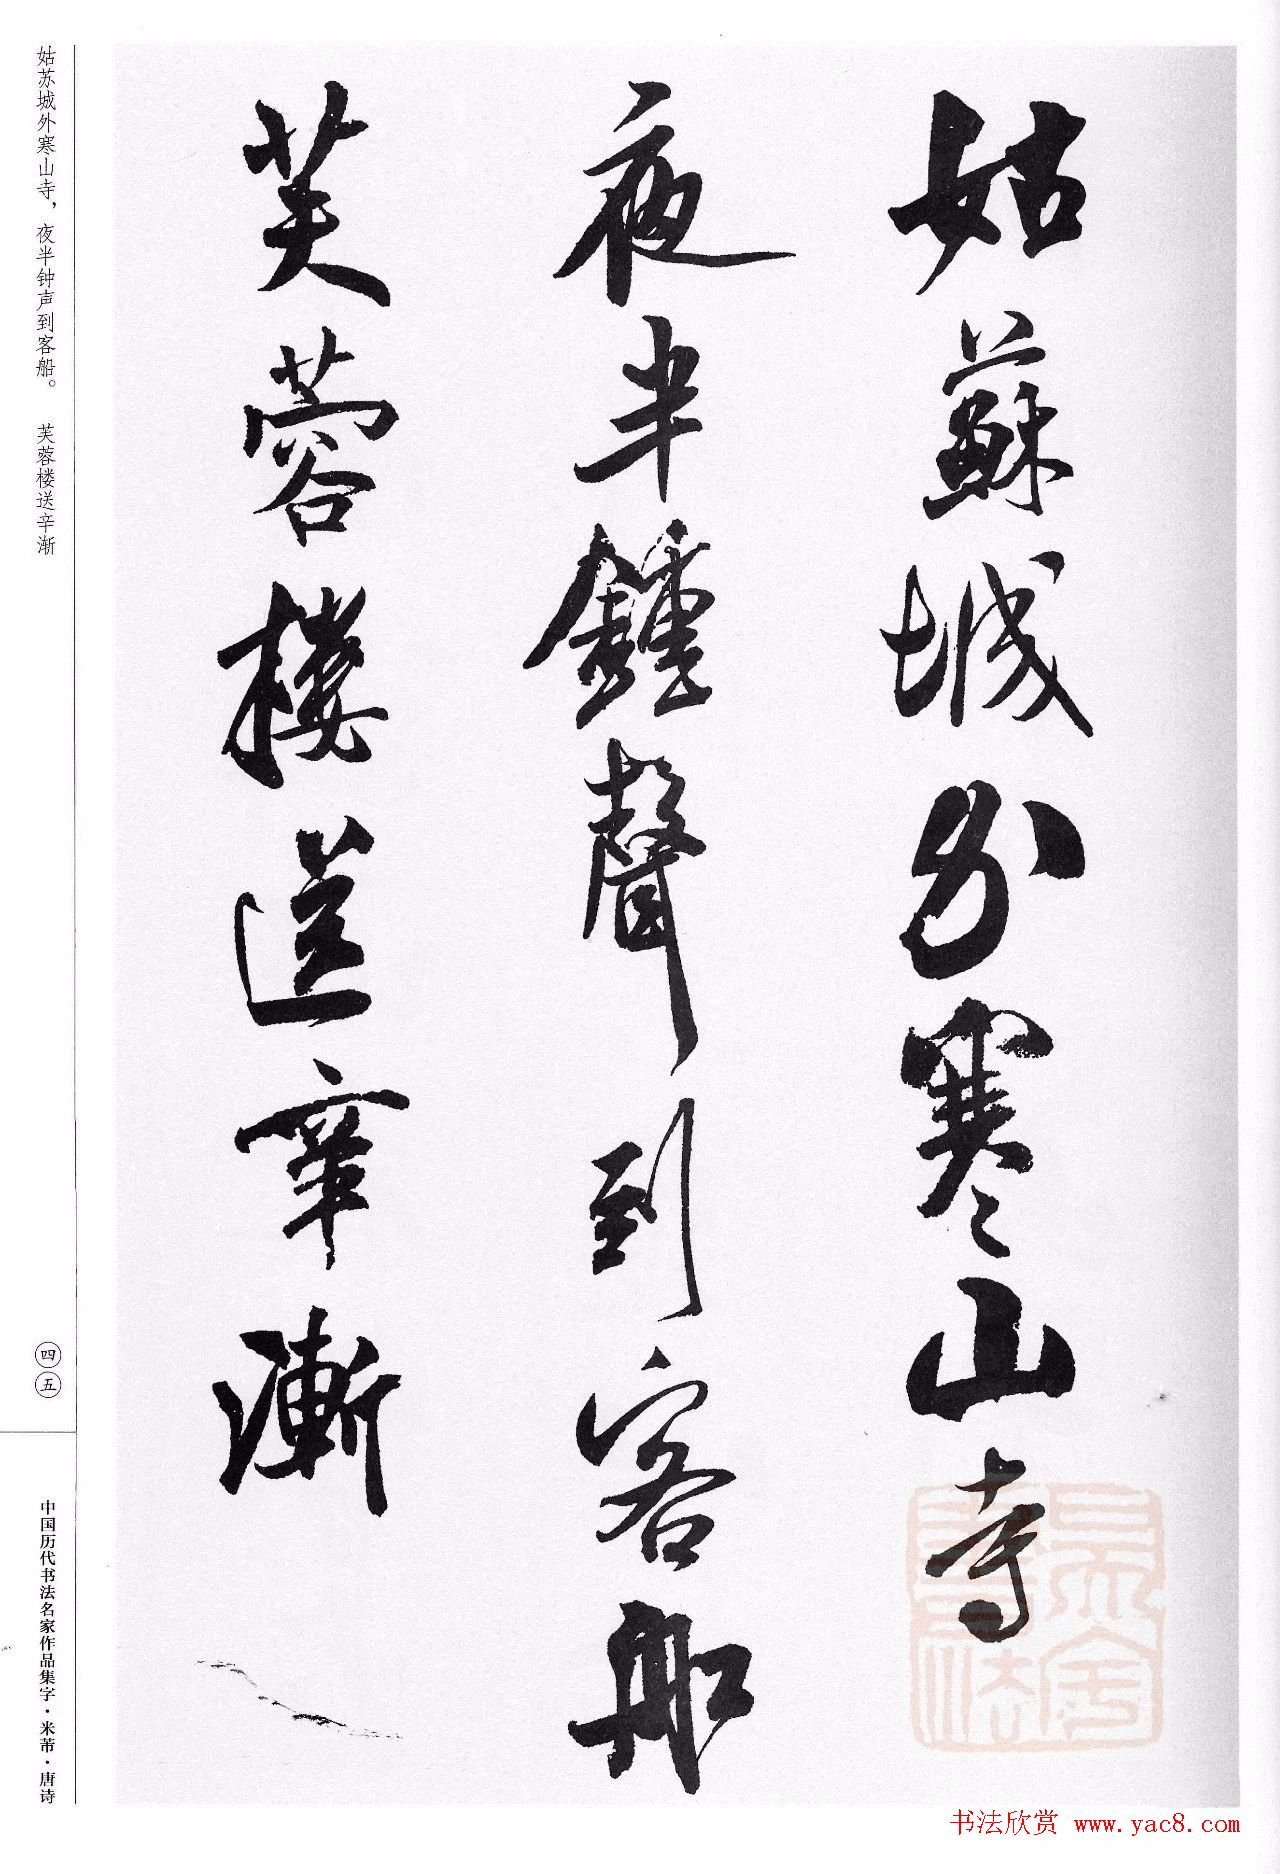 姑蘇城外寒山寺
夜半鍾聲到客船
芙蓉樓送辛漸
姑苏城外寒山寺，夜半钟声到客船。 芙蓉楼送辛渐
四五
中国历代书法名家作品集字·米芾·唐诗
书法欣赏 www.yac8.com